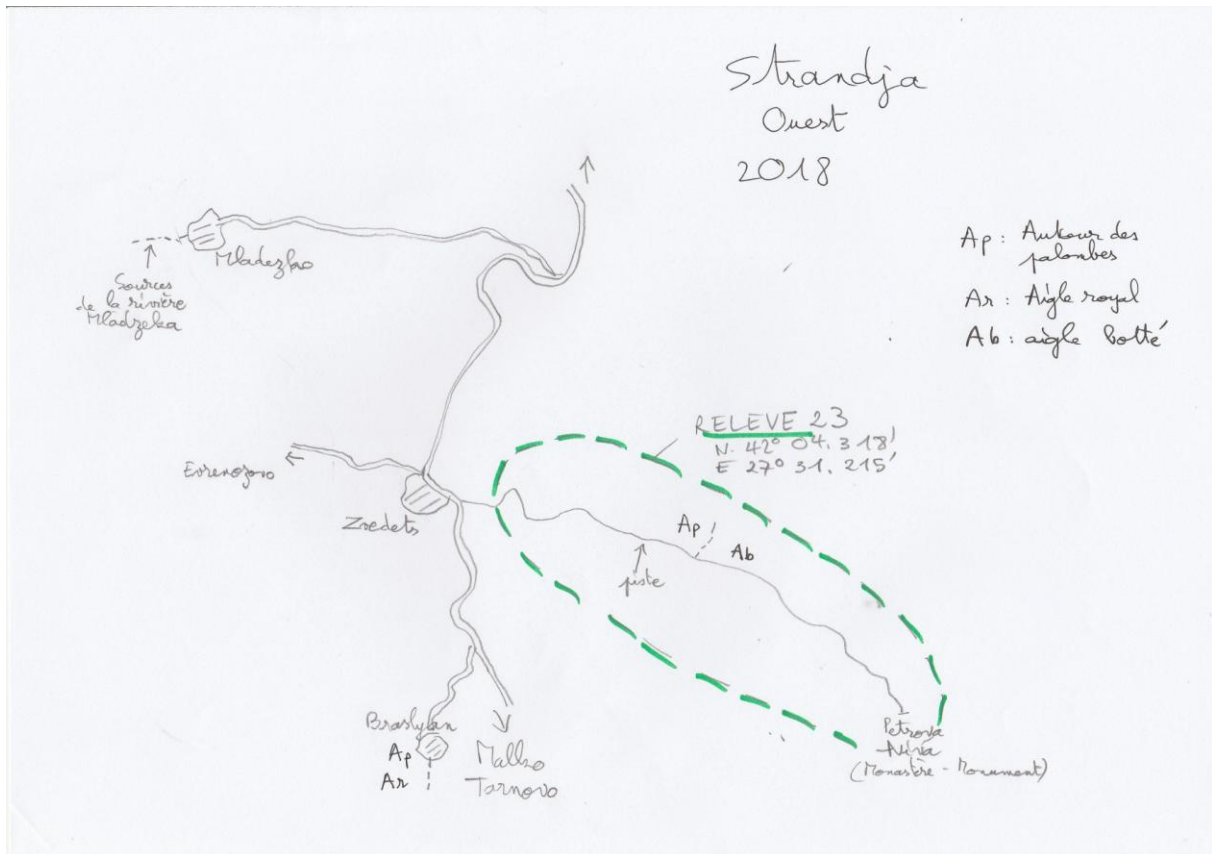 Strandja
Ouest
2018
Ap : Autour des
palombes
Ar : Aigle royal
Ab : aigle botté
Mladezko
Sources
de la rivière
Mladzeka
RELEVE 23
N. 42° 04. 318'
E 27° 31. 215'
Evrenozovo
Zvedets
Ap
Ab
piste
Brashlyan
Ap
Ar
Malko
Tarnovo
Petrova
Niva
(Monastère - Monument)